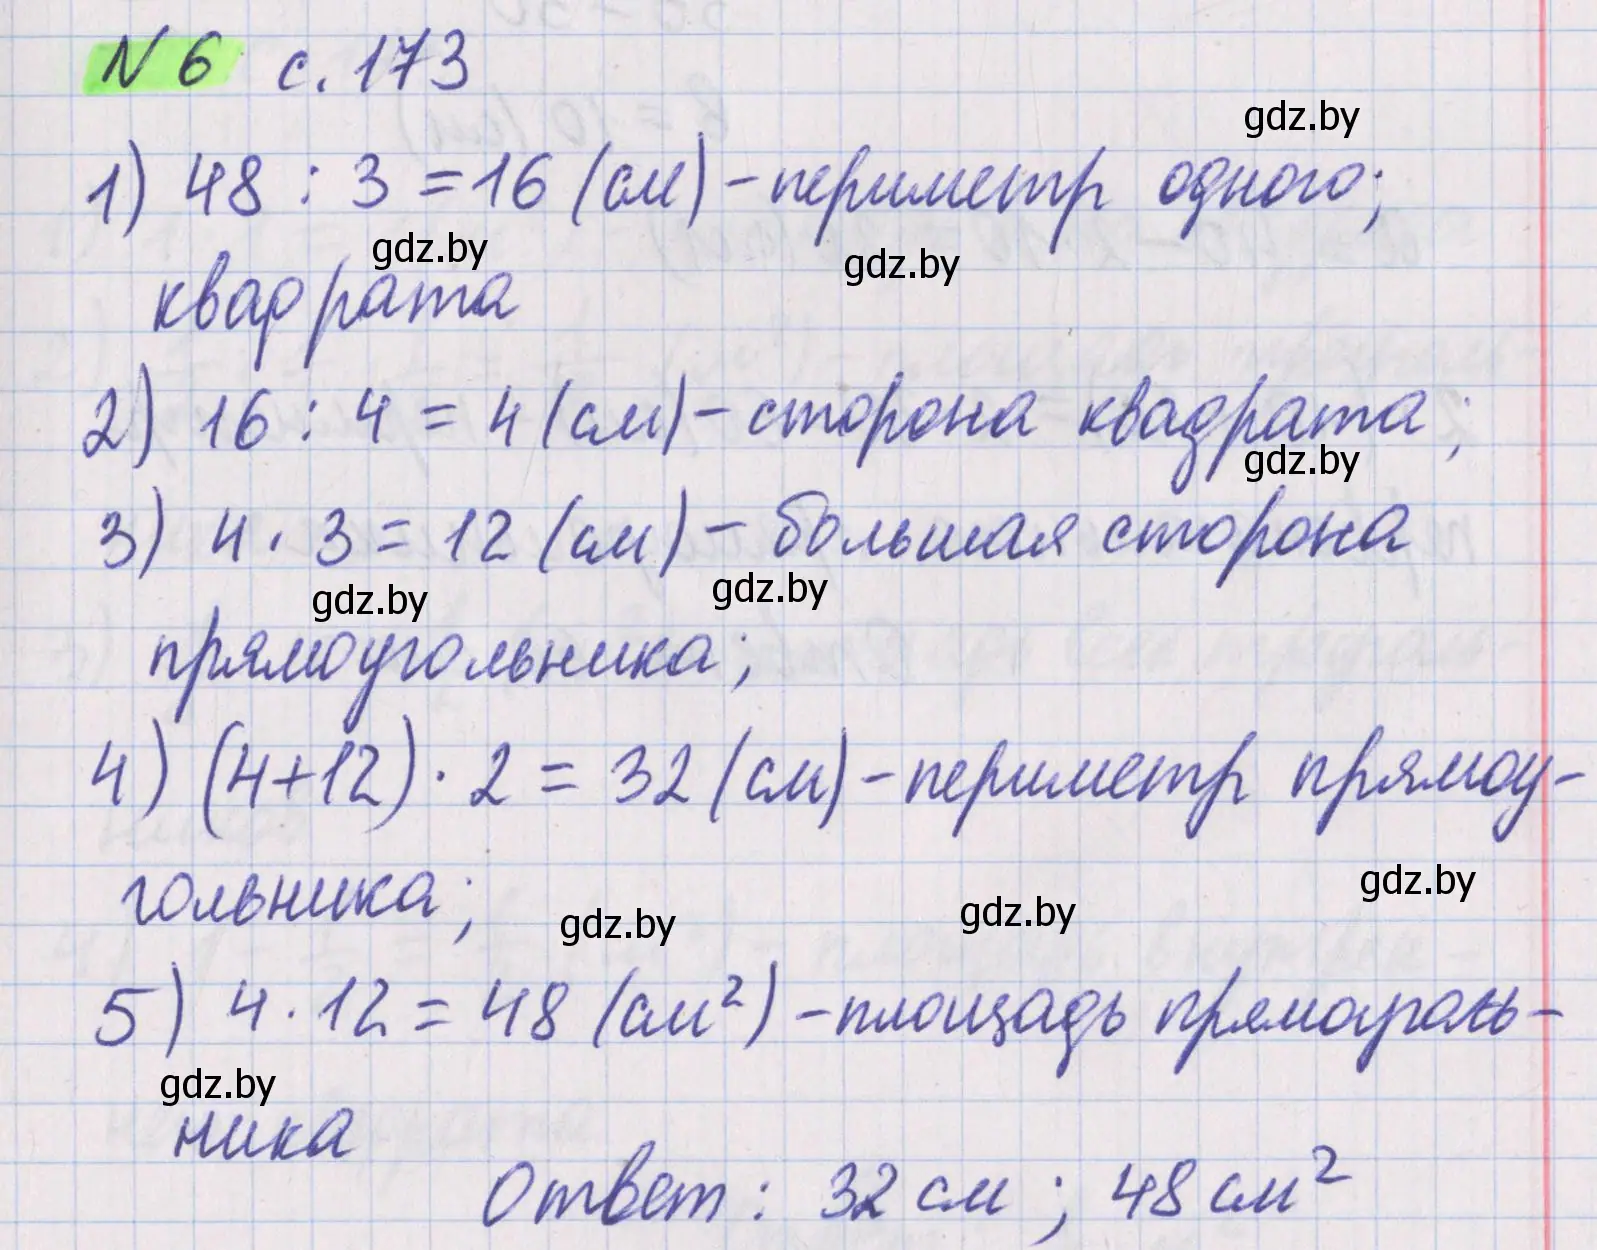 N 6 с. 173
gdz.by
1) 48 : 3 = 16 (см) – периметр одного;
gdz.by
gdz.by
квадрата
2) 16 : 4 = 4 (см) – сторона квадрата;
gdz.by
3) 4 · 3 = 12 (см) – большая сторона
gdz.by
gdz.by
прямоугольника;
4) (4+12) · 2 = 32 (см) – периметр прямоу-
гольника;
gdz.by
gdz.by
gdz.by
5) 4 · 12 = 48 (см²) – площадь прямоуголь-
gdz.by
ника
Ответ: 32 см; 48 см²